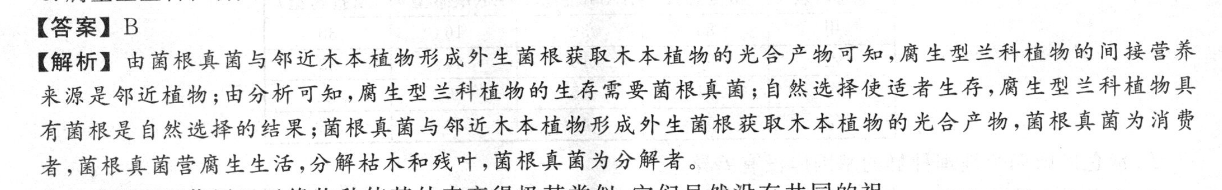 【答案】B
【解析】由菌根真菌与邻近木本植物形成外生菌根获取木本植物的光合产物可知,腐生型兰科植物的间接营养
来源是邻近植物;由分析可知,腐生型兰科植物的生存需要菌根真菌;自然选择使适者生存,腐生型兰科植物具
有菌根是自然选择的结果;菌根真菌与邻近木本植物形成外生菌根获取木本植物的光合产物,菌根真菌为消费
者,菌根真菌营腐生生活,分解枯木和残叶,菌根真菌为分解者。